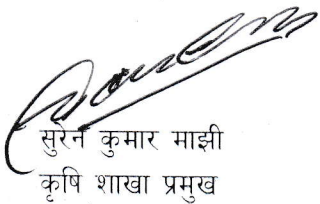 सुरेन कुमार माझी
कृषि शाखा प्रमुख